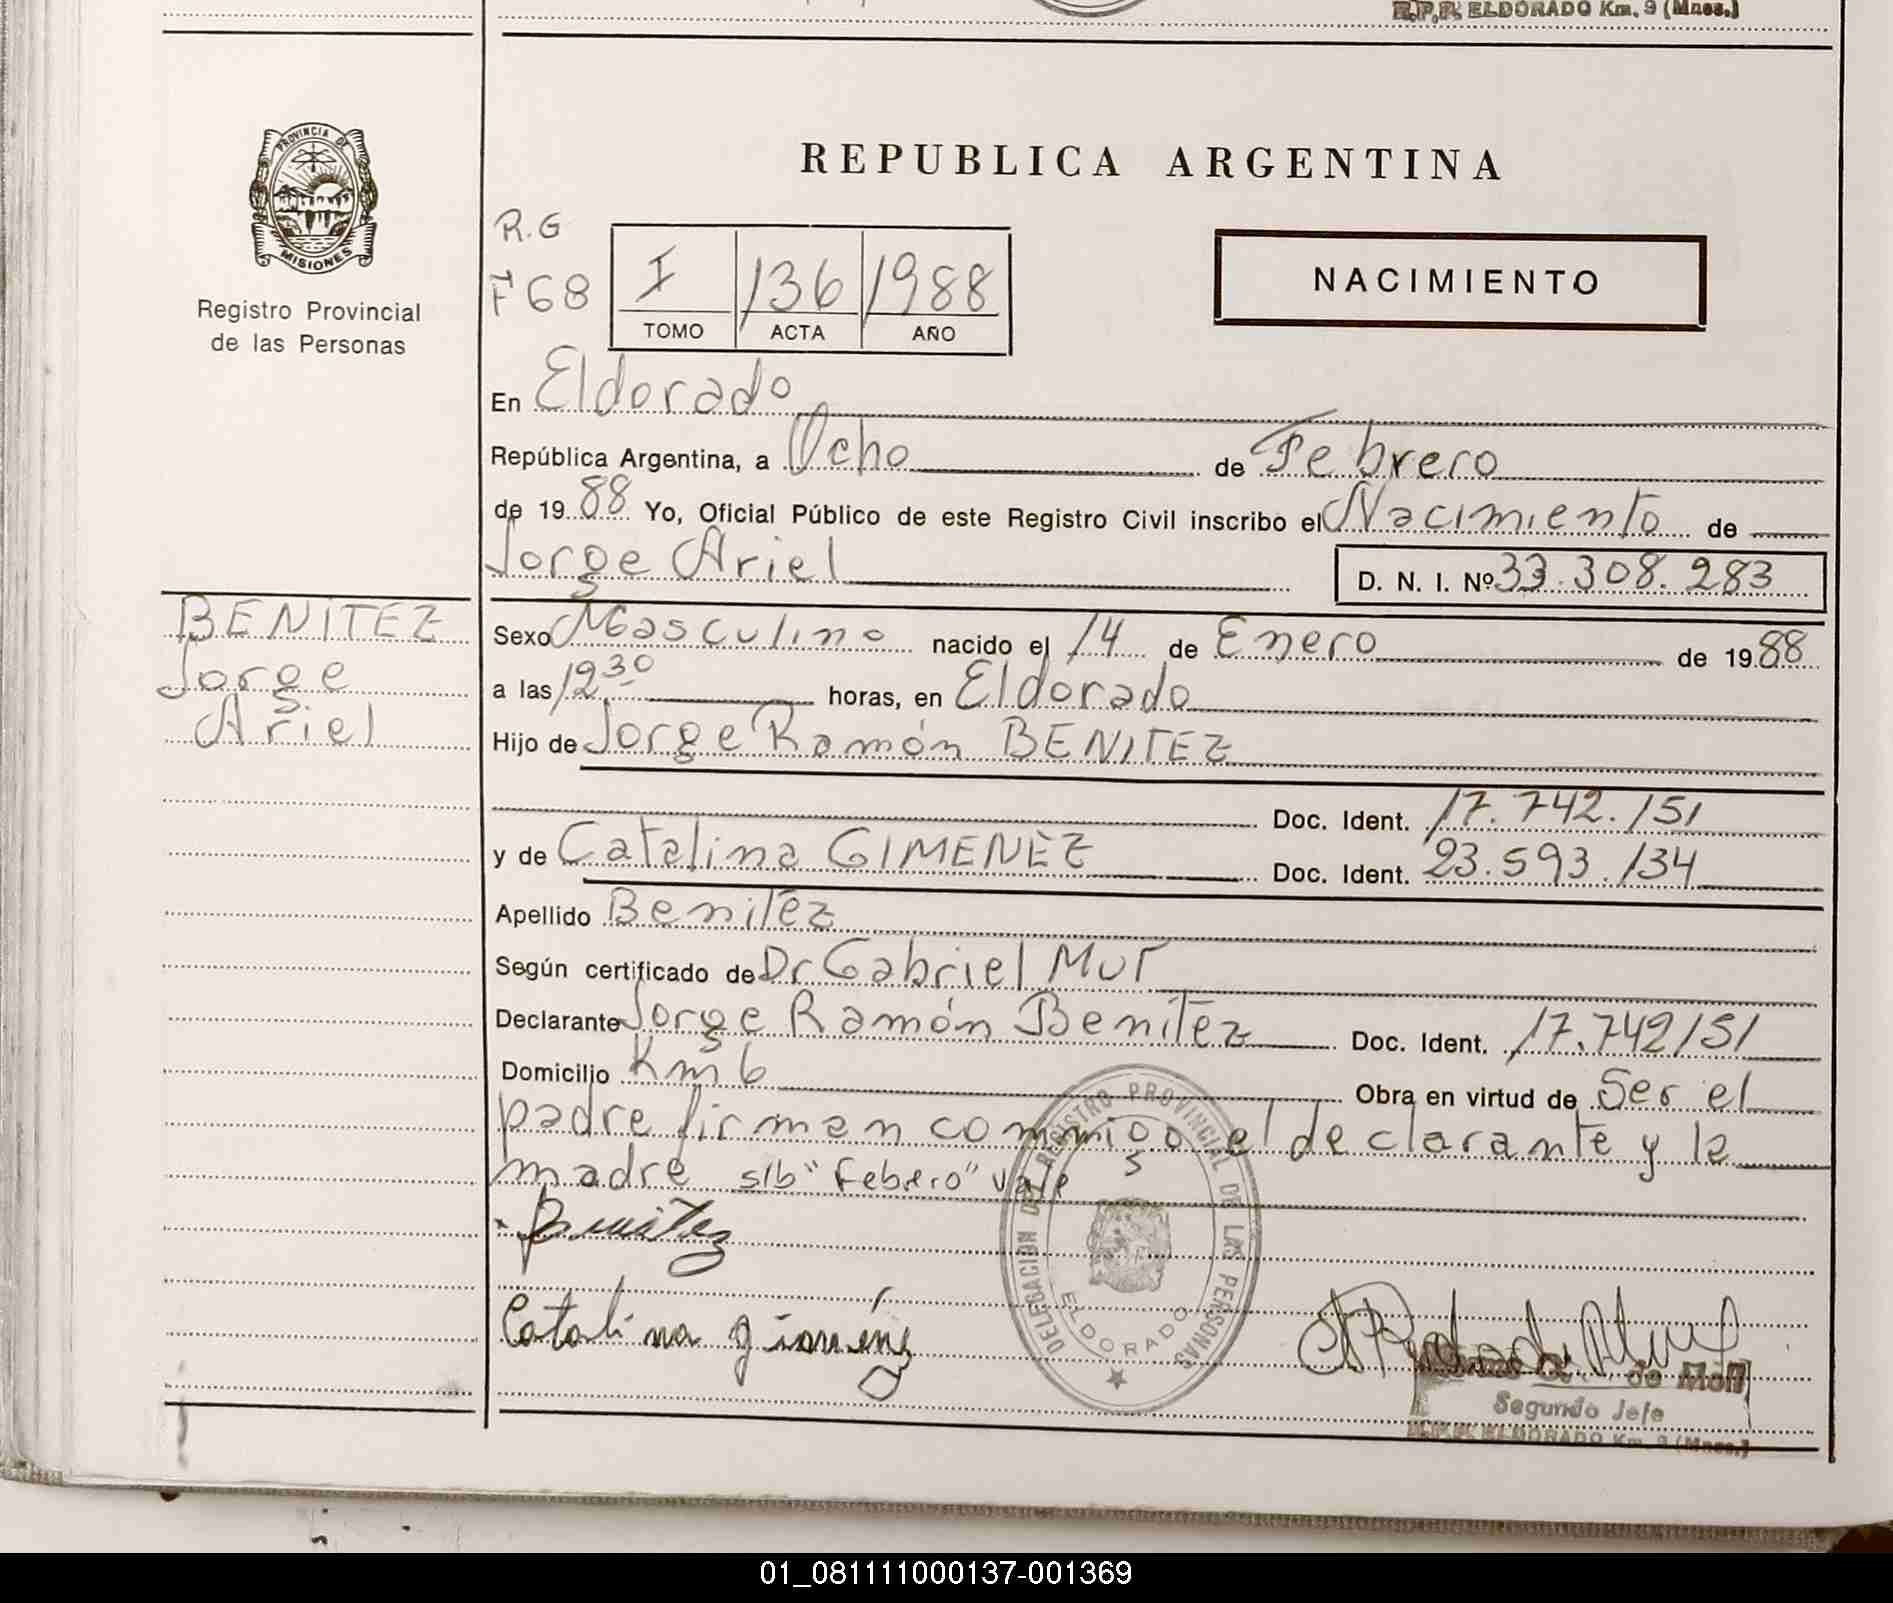 R.P.P. ELDORADO Km. 9 (Mnes.)
PROVINCIA DE
MISIONES
Registro Provincial
de las Personas
REPUBLICA ARGENTINA
R.G
F 68
I 136 1988
TOMO ACTA AÑO
NACIMIENTO
En Eldorado
República Argentina, a Ocho de Febrero
de 19 88 Yo, Oficial Público de este Registro Civil inscribo el Nacimiento de
Jorge Ariel D. N. I. Nº 33.308.283
BENITEZ
Jorge
Ariel
Sexo Masculino nacido el 14 de Enero de 19 88
a las 12 30 horas, en Eldorado
Hijo de Jorge Ramón BENITEZ
Doc. Ident. 17.742.151
y de Catalina GIMENEZ Doc. Ident. 23.593.134
Apellido Benitez
Según certificado de Dr Gabriel MUT
Declarante Jorge Ramón Benitez Doc. Ident. 17.742151
Domicilio Km 6 Obra en virtud de Ser el
padre firman conmigo el declarante y la
madre s/b "Febrero" vale
Benitez
Catalina giménez
DELEGACION DEL REGISTRO PROVINCIAL DE LAS PERSONAS
ELDORADO
de Moll
Segundo Jefe
R.P.P. ELDORADO Km. 9 (Mnes.)
01_081111000137-001369